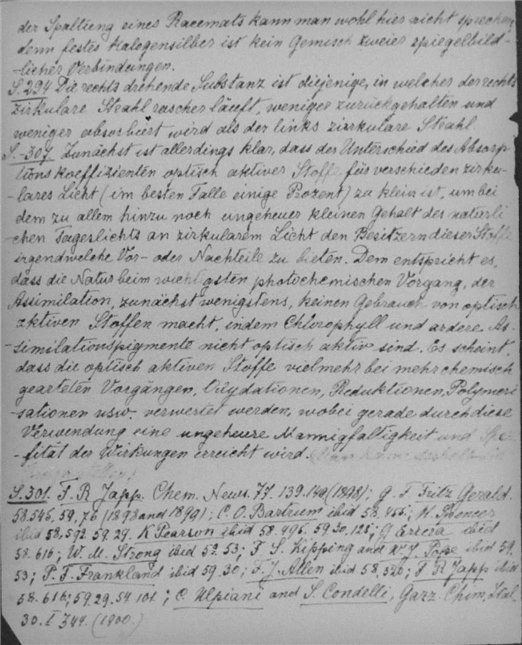 der Spaltung eines Racemats kann man wohl hier nicht sprechen,
denn festes Halogensilber ist kein Gemisch zweier spiegelbild-
licher Verbindungen.
S. 294 Die rechts drehende Substanz ist diejenige, in welcher der rechts
zirkulare Strahl rascher läuft, weniger zurückgehalten und
weniger absorbiert wird als der links zirkulare Strahl.
S. 307 Zunächst ist allerdings klar, dass der Unterschied des Absorp-
tionskoeffizienten optisch aktiver Stoffe für verschieden zirku-
lares Licht (im besten Falle einige Prozent) zu klein ist, um bei
dem zu allem hinzu noch ungeheuer kleinen Gehalt des natürli-
chen Tageslichts an zirkularem Licht den Besitzern dieser Stoffe
irgendwelche Vor- oder Nachteile zu bieten. Dem entspricht es,
dass die Natur beim wichtigsten photochemischen Vorgang, der
Assimilation, zunächst wenigstens, keinen Gebrauch von optisch
aktiven Stoffen macht, indem Chlorophyll und andere As-
similationspigmente nicht optisch aktiv sind. Es scheint,
dass die optisch aktiven Stoffe vielmehr bei mehr chemisch
gearteten Vorgängen, Oxydationen, Reduktionen, Polymeri-
sationen usw. verwertet werden, wobei gerade durch diese
Verwendung eine ungeheure Mannigfaltigkeit und Spezi-
fität der Wirkungen erreicht wird.
S. 301. F. R. Japp. Chem. News. 77. 139. 149 (1898); G. F. Fitz Gerald.
58.545, 59, 76 (1898 and 1899); C. O. Bartrum ibid 58. 545; H. Spencer
ibid 58,592 59.29. K Pearson ibid 58. 495, 59.30, 125; G Errera ibid
58. 616; W. M. Strong ibid 59. 53; F. S. Kipping and W. J. Pope ibid 59.
53; P. F. Frankland ibid 59. 30; F. J. Allen ibid 58. 520; F R Japp ibid
58. 616; 59. 29. 54 101; C Ulpiani and S. Condelli, Gazz. Chim. Ital.
30. I 344. (1900.)